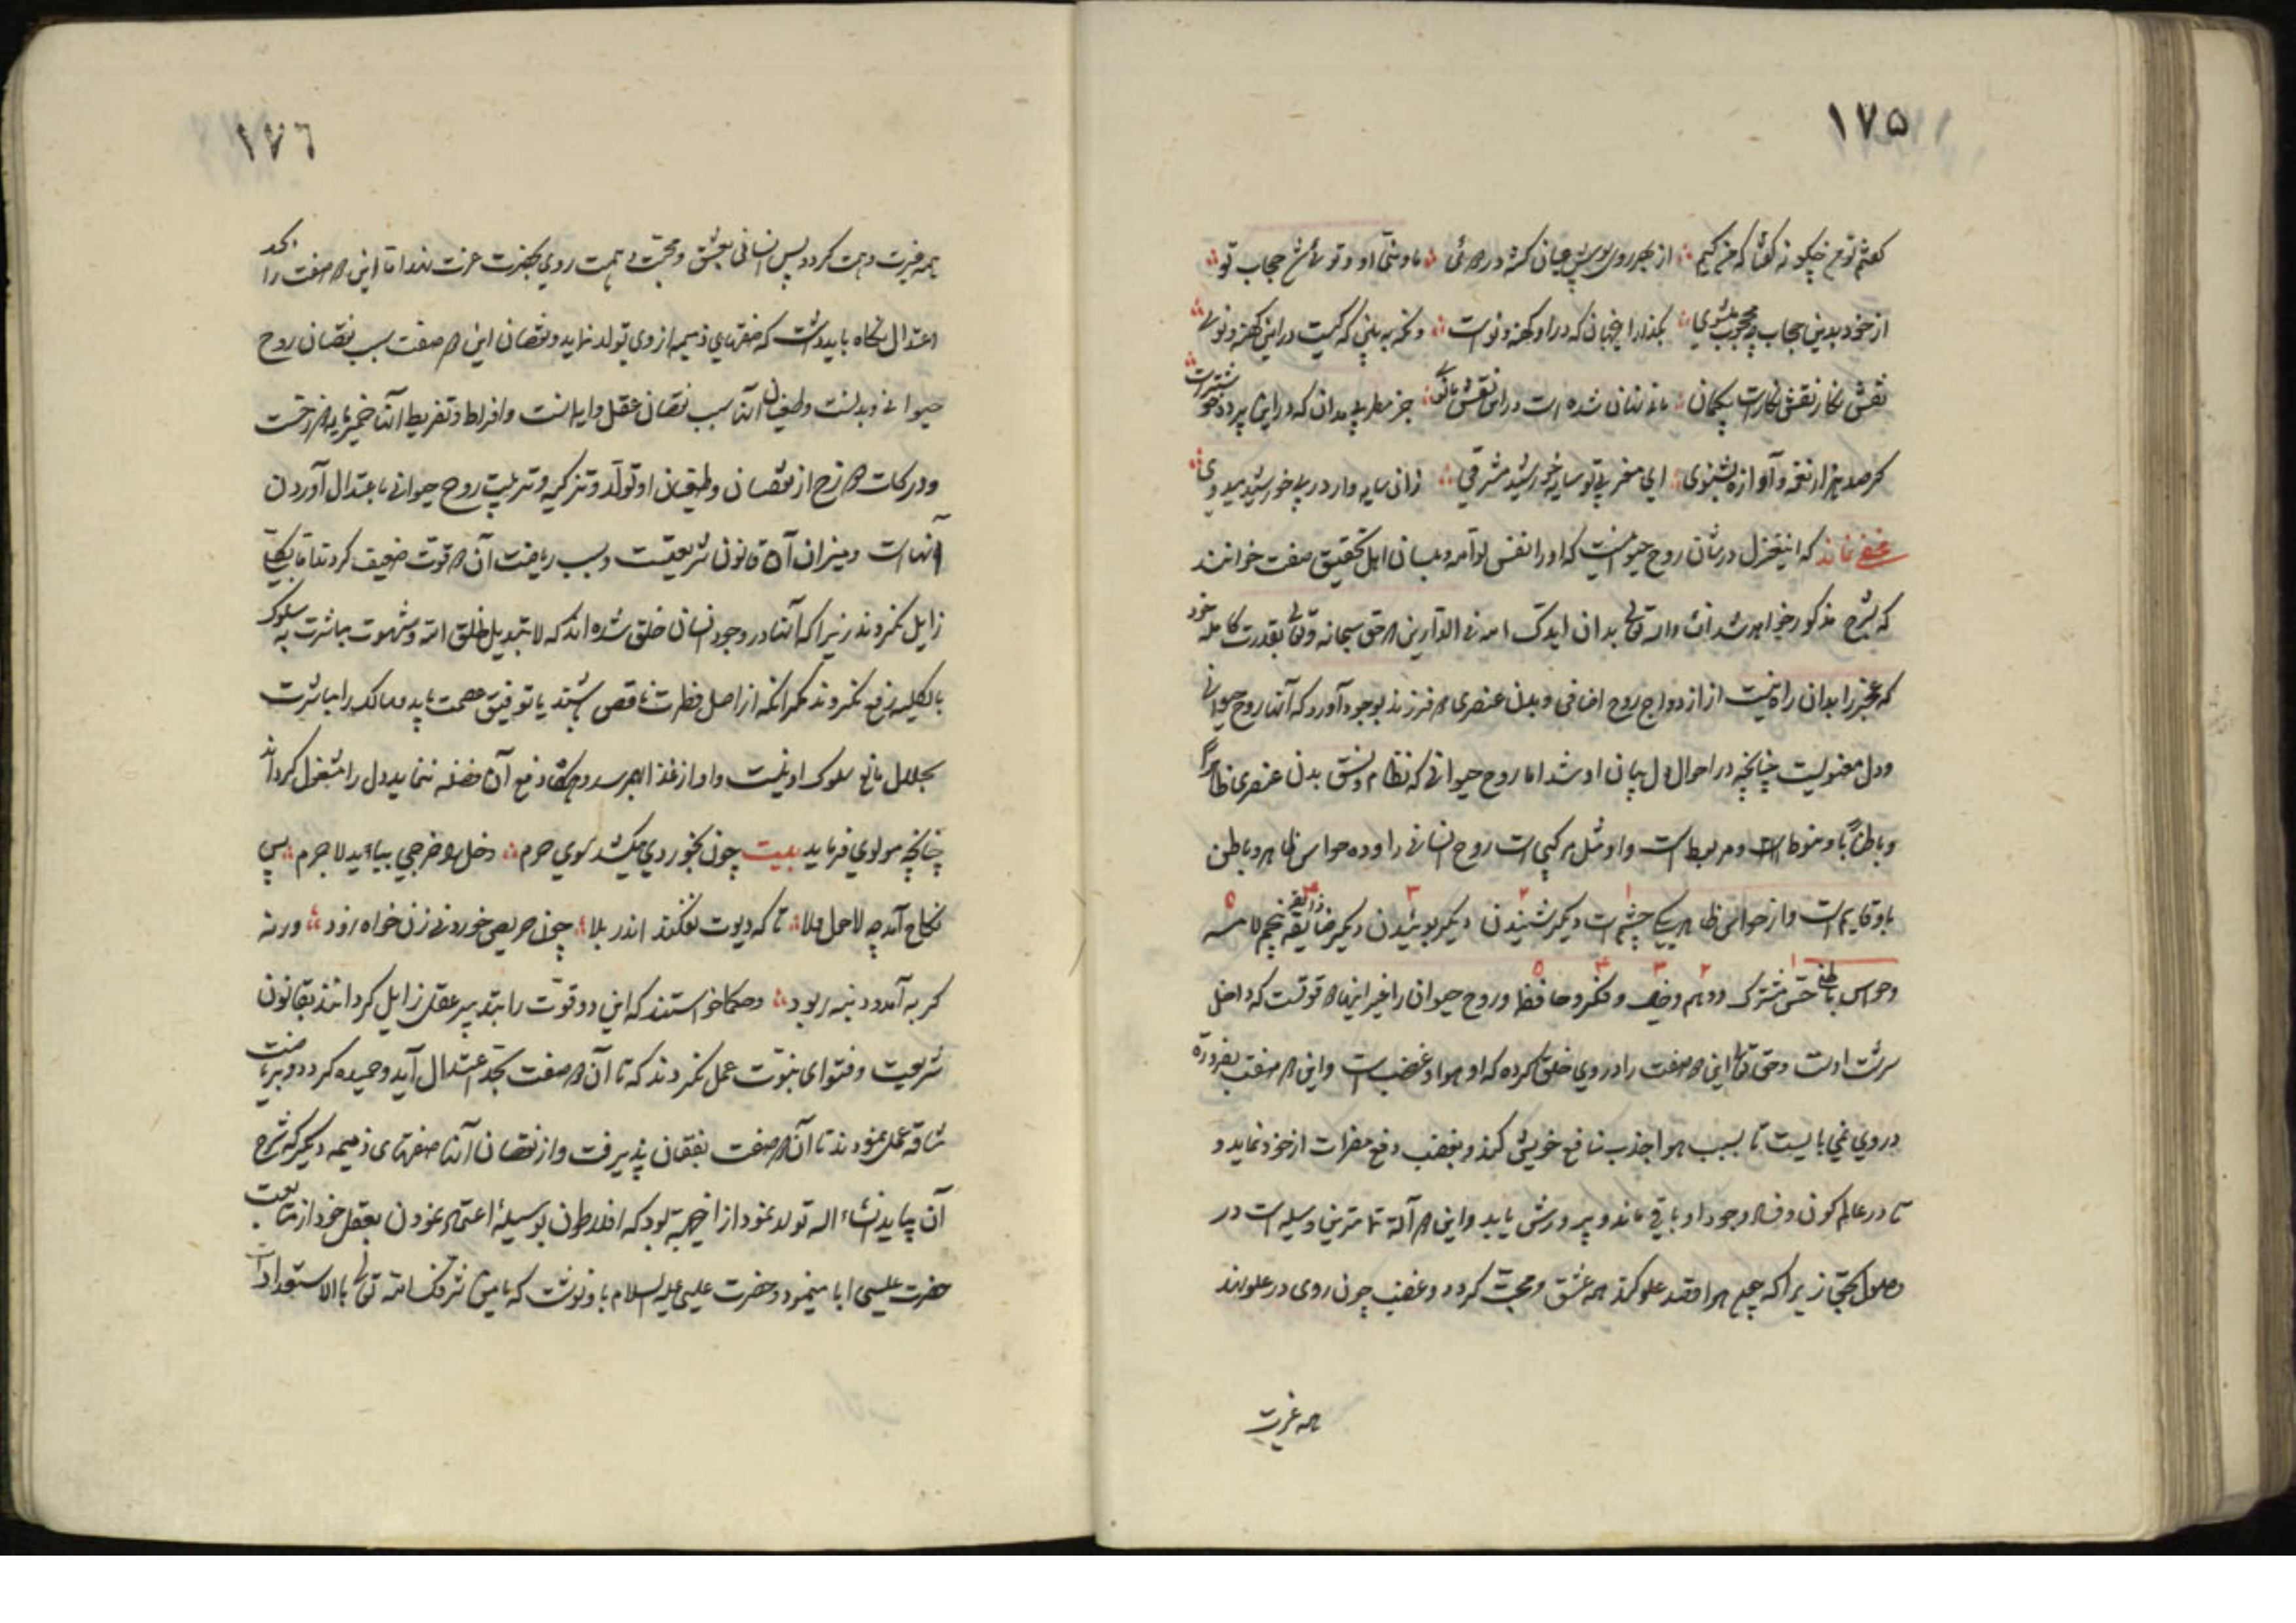 ١٧٥
از خود بدین حجاب چه محجوب میشوی بگذار این جهان که در او کهنه و نو است
نقش نگار نقش نگار است بیگمان
گر صد هزار نغمه و آوازه بشنوی ای مغربی تو سایه خورشید مشرقی زان سایه وار در پی خورشید میدوی
مخفی نماند که این غزل در شان روح حیوانیست که او را نفس لوامه و بلسان اهل تحقیق صفت خوانند
که بشرح مذکور خواهد شد انشاء الله تعالی بدان ایدک الله فی الدارین که حق سبحانه و تعالی بقدرت کامله خود
که عجز را بدان راه نیست از ازدواج روح اضافی و بدن عنصری دو فرزند بوجود آورد که آنها روح حیوانی
و دل معنویست چنانچه در احوال دل بیان او شد اما روح حیوانی که نظام و نسق بدن عنصری ظاهرا
و باطنا باو منوط است و مربوط است و او مثل مرکبی است روح انسانی را و ده حواس ظاهر و باطن
باو قایم است و از حواس ظاهر یکی چشم است دیگر شنیدن دیگر بوئیدن دیگر ذایقه پنجم لامسه
١ ٢ ٣ ۴ ۵
و حواس باطن حس مشترک و وهم و خیال و فکر و حافظه و روح حیوان را غیر این دو قوتست که داخل
سرشت اوست و حق تعالی این دو صفت را در وی خلق کرده که او هوا و غضب است و این دو صفت بضروره
در وی می بایست تا بسبب هوا جذب منافع خویش کند و بغضب دفع مضرات از خود نماید و
تا در عالم کون و فساد وجود او باقی ماند و پرورش یابد و این دو آلة تمامترین وسیله است در
وصول بحق زیرا که چون هوا قصد علو کند همه عشق و محبت گردد و غضب چون روی در علو نهد
همه غیرت
١٧٦
همه غیرت و همت گردد پس انسانی بعشق و محبت و همت روی بحضرت عزت نهد اما این دو صفت را بحد
اعتدال نگاه باید داشت که صفتهای ذمیمه از وی تولد نماید و نقصان این دو صفت سبب نقصان روح
حیوانی و بدنست و طغیان آنها سبب نقصان عقل و ایمانست و افراط و تفریط آنها
و درکات دوزخ از نقصان و طغیان او تولد و تزکیه و تربیت روح حیوانی باعتدال آوردن
آنها است و میزان آن قانون شریعتست و بسبب ریاضت آن دو قوت ضعیف گردند اما بکلی
زایل نگردند زیرا که آنها در وجود انسان خلق شده اند که لا تبدیل لخلق الله و شهوت مباشرت به سلوک
بالکلیه رفع نگردند مگر آنکه از اصل فطرت ناقص باشند یا توفیق عصمت یابد و سالک را مباشرت
بحلال مانع سلوک او نیست و او از غذا بهم رسد و هرگاه دفع آن فضله ننماید دل را مشغول گرداند
چنانچه مولوی فرماید بیت چون بخوردی میکشد سوی حرم دخل را خرجی بباید لاجرم پس
نکاح آمد چو لاحول ولا تا که دیوت نفکند اندر بلا چون حریص خوردنی زن خواه زود ورنه
گربه آمد و دنبه ربود و حکما خواستند که این دو قوت را بتدبیر عقل زایل گردانند بقانون
شریعت و فتوای نبوت عمل نکردند که تا آن دو صفت بحد اعتدال آید و حمیده گردد و بریاضت
شاقه عمل نمودند تا آن دو صفت نقصان پذیرفت و از نقصان آنها صفتهای ذمیمه دیگر که شرح
آن بیاید انشاء الله تولد نمود از اینجهة بود که افلاطون بوسیلهٔ اعتماد نمودن بعقل خود از متابعت
حضرت عیسی ابا مینمود و حضرت عیسی علیه السلام باو نوشت که